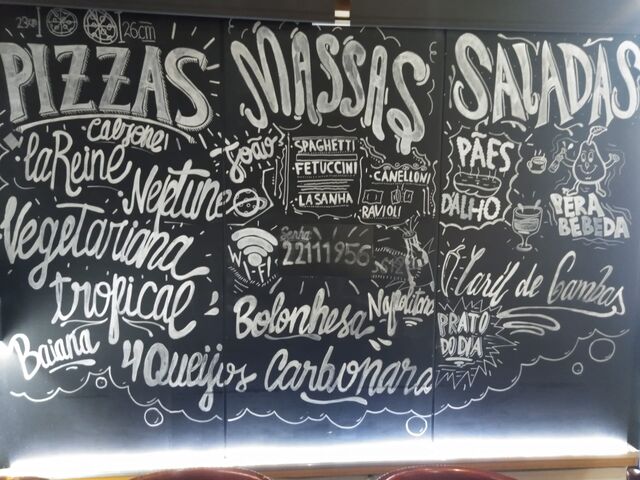 23cm 26cm
PIZZAS
Calzone
la Reine
Neptune
Vegetariana
tropical
Baiana
4 Queijos
MASSAS
João
SPAGHETTI
FETUCCINI
LASANHA
CANELLONI
RAVIOLI
WI-FI
Senha
22111956
Bolonhesa
Napolitana
Carbonara
SALADAS
PÃES
DALHO
PÊRA
BÊBEDA
de Gambas
PRATO
DO DIA